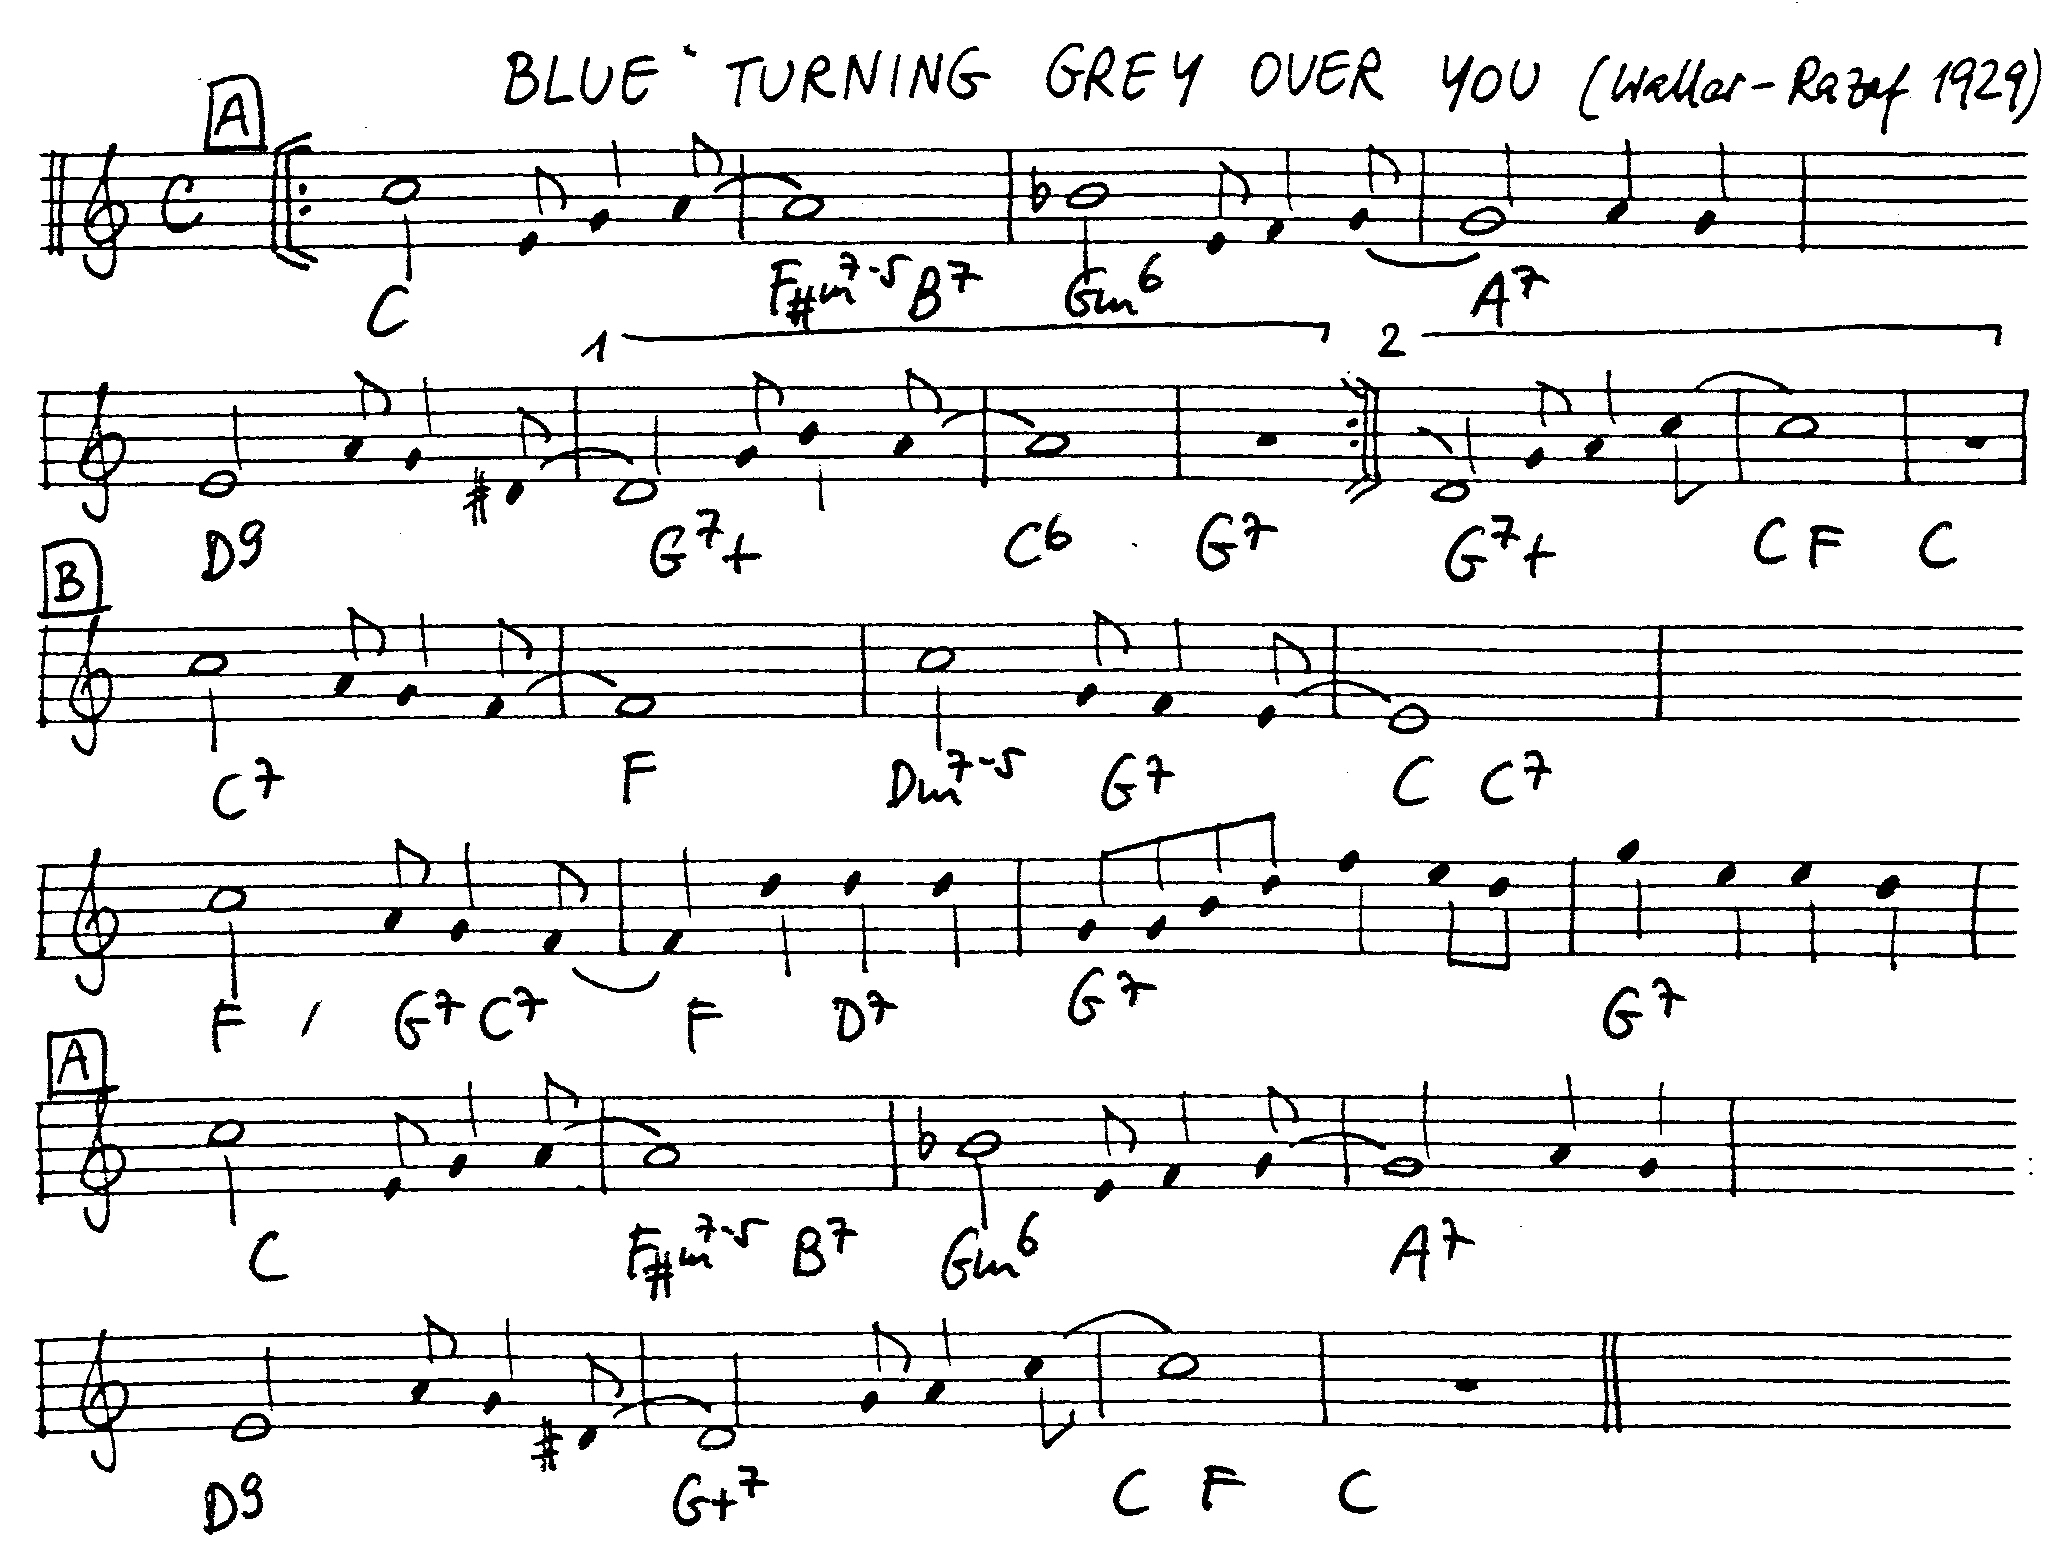 BLUE TURNING GREY OVER YOU (Waller-Razaf 1929)
A
C
C F#m7-5 B7 Gm6 A7
1 2
D9 G7+ C6 G7 G7+ C F C
B
C7 F Dm7-5 G7 C C7
F / G7 C7 F D7 G7 G7
A
C F#m7-5 B7 Gm6 A7
D9 G+7 C F C